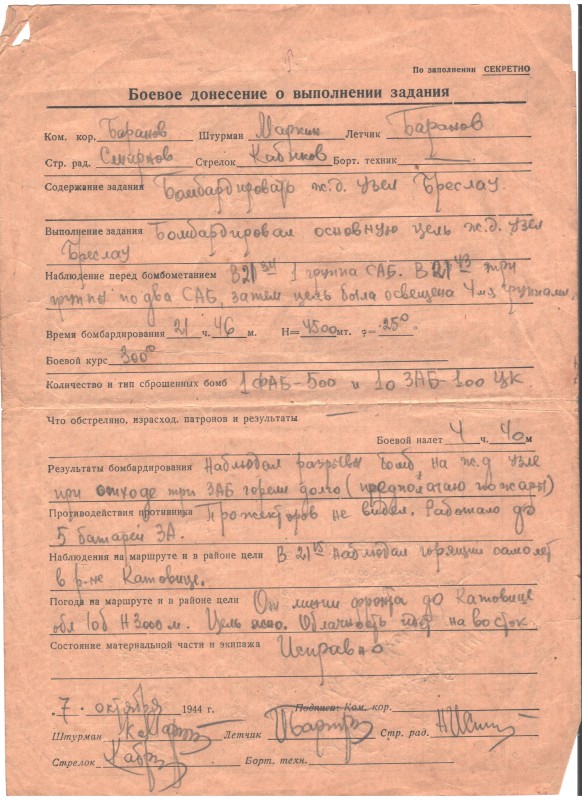 По заполнении СЕКРЕТНО
Боевое донесение о выполнении задания
Ком. кор. Баранов Штурман Маркин Летчик Баранов
Стр. рад. Смирнов Стрелок Борт. техник
Содержание задания Бомбардировать ж.д. узел Бреслау.
Выполнение задания Бомбардировал основную цель ж.д. узел
Бреслау
Наблюдение перед бомбометанием В 21 34 1 группа САБ. В 21 43 три
группы по два САБ, затем цель была освещена 4мя группами
Время бомбардирования 21 ч. 46 м. Н= 4500 мт. ?= -25°
Боевой курс 300°
Количество и тип сброшенных бомб 1 ФАБ-500 и 10 ЗАБ-100 ЦК
Что обстреляно, израсход. патронов и результаты
Боевой налет 4 ч. 40 м
Результаты бомбардирования Наблюдал разрывы бомб на ж.д узле
при отходе три ЗАБ горели долго (предполагаю пожары)
Противодействия противника Прожекторов не видел. Работало до
5 батарей ЗА.
Наблюдения на маршруте и в районе цели В 21 15 наблюдал горящий самолет
в р-не Катовице.
Погода на маршруте и в районе цели От линии фронта до Катовице
обл 10б Н 3000 м. Цель ясно. Облачность идет на восток.
Состояние материальной части и экипажа Исправно
"7" октября 1944 г. Подписи: Ком. кор.
Штурман Летчик Стр. рад.
Стрелок Борт. техн.